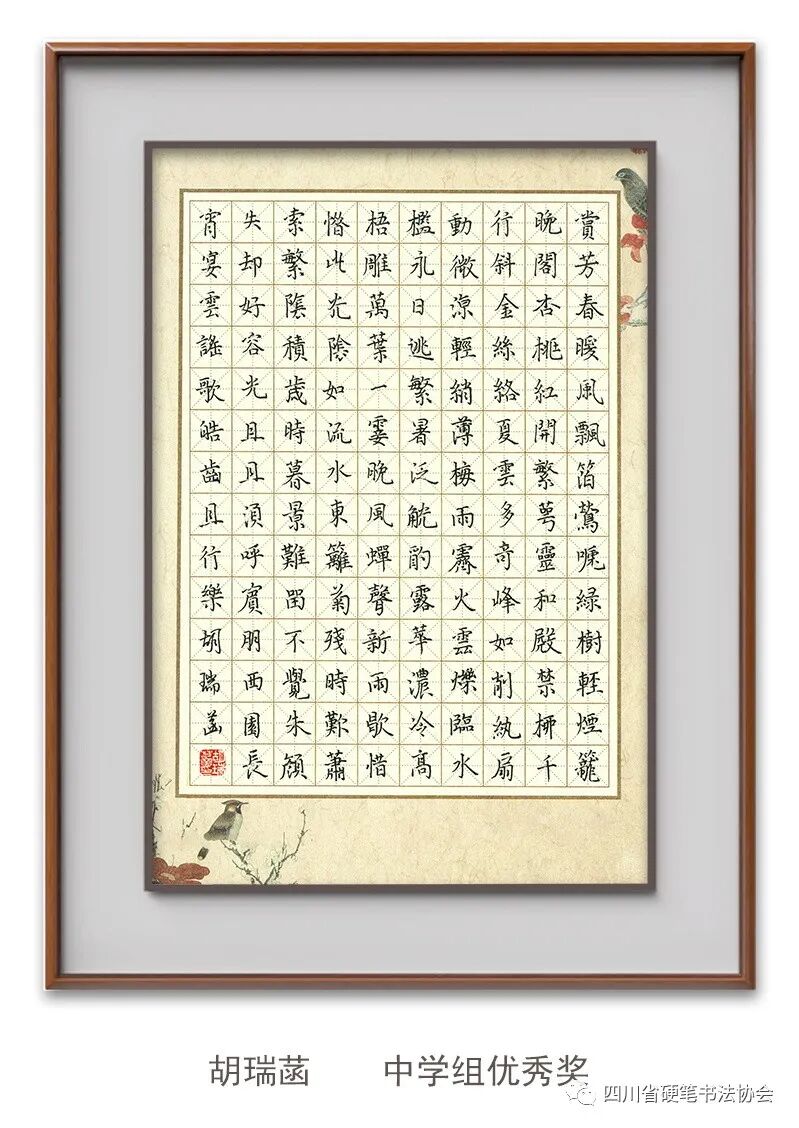 賞芳春暖風飄箔鶯嗁綠樹輕煙籠
晚閣杏桃紅開繁萼靈和殿禁桺千
行斜金絲絡夏雲多奇峰如削紈扇
動微涼輕綃薄梅雨霽火雲爍臨水
檻永日逃繁暑泛觥酌露華濃冷高
梧雕萬葉一霎晚風蟬聲新雨歇惜
惜此光陰如流水東籬菊殘時歎蕭
索繁陰積歲時暮景難留不覺朱顏
失却好容光且且須呼賓朋西園長
宵宴雲謠歌皓齒且行樂胡瑞菡
胡瑞菡 中学组优秀奖
四川省硬笔书法协会